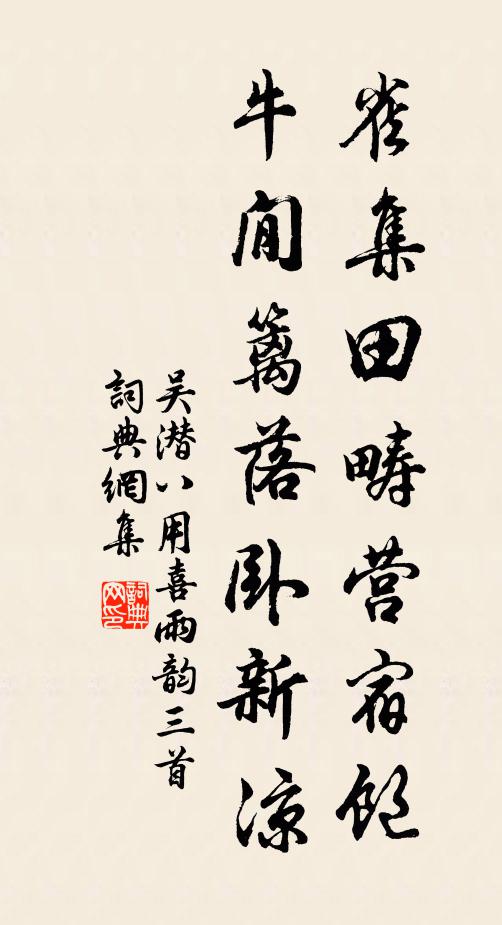 雀集田疇营宿飽
牛閒籬落卧新凉
吴潜八用喜雨韵三首
詞典網集
詞典網印